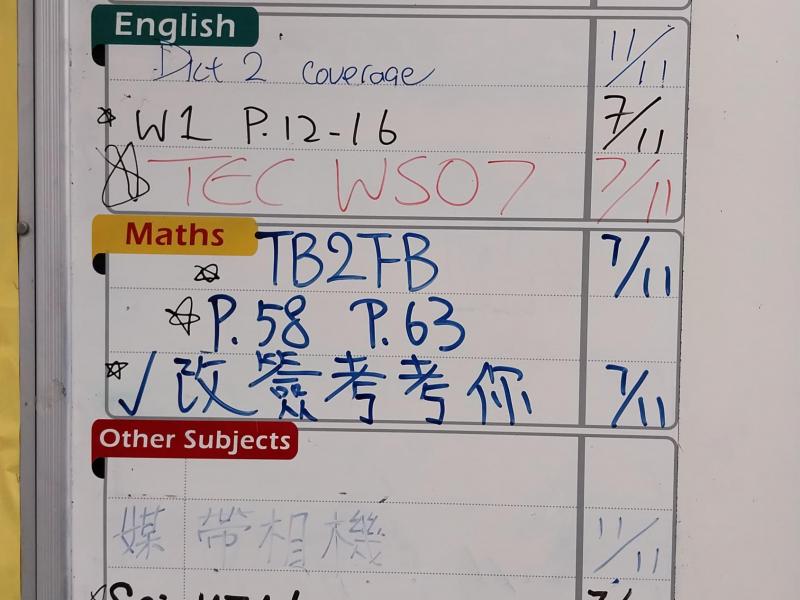 English
Dict 2 coverage 11/11
☆ W1 P.12-16 7/11
☆ TEC WS07 7/11
Maths
☆ TB2FB 7/11
☆ P.58 P.63
☆ √改簽考考你 7/11
Other Subjects
媒 帶相機 11/11